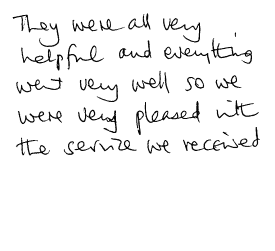 They were all very
helpful and everything
went very well so we
were very pleased with
the service we received